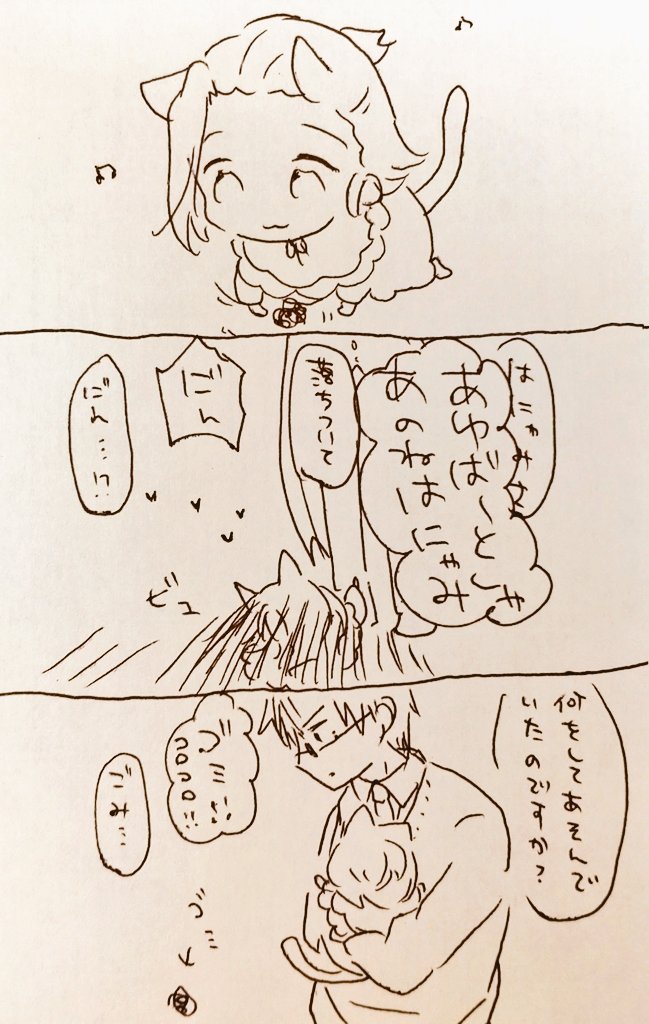 はにゃみさ
あゆば〜としゃ
あのねはにゃみ
落ちついて
ごん
ごん…に
ピュ
何をしてあそんで
いたのですか?
ごみ…